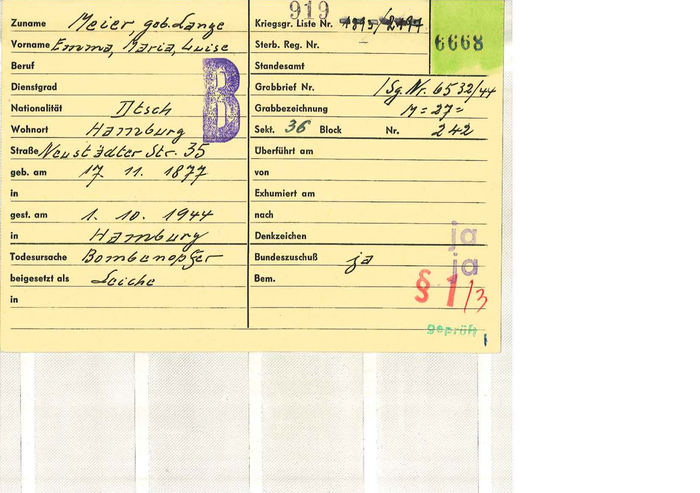 919
Zuname Meier, geb. Lange
Vorname Emma, Maria, Luise
Beruf
Dienstgrad
Nationalität Dtsch
Wohnort Hamburg
Straße Neustädter Str. 35
geb. am 17. 11. 1877
in
gest. am 1. 10. 1944
in Hamburg
Todesursache Bombenopfer
beigesetzt als Leiche
in
B
Kriegsgr. Liste Nr.
6668
Sterb. Reg. Nr. –
Standesamt
Grabbrief Nr. / Sg. Nr. 6532/44
Grabbezeichnung M = 27 =
Sekt. 36 Block Nr. 242
Überführt am
von
Exhumiert am
nach
Denkzeichen ja
Bundeszuschuß ja ja
Bem.
§ 1/3
geprüft